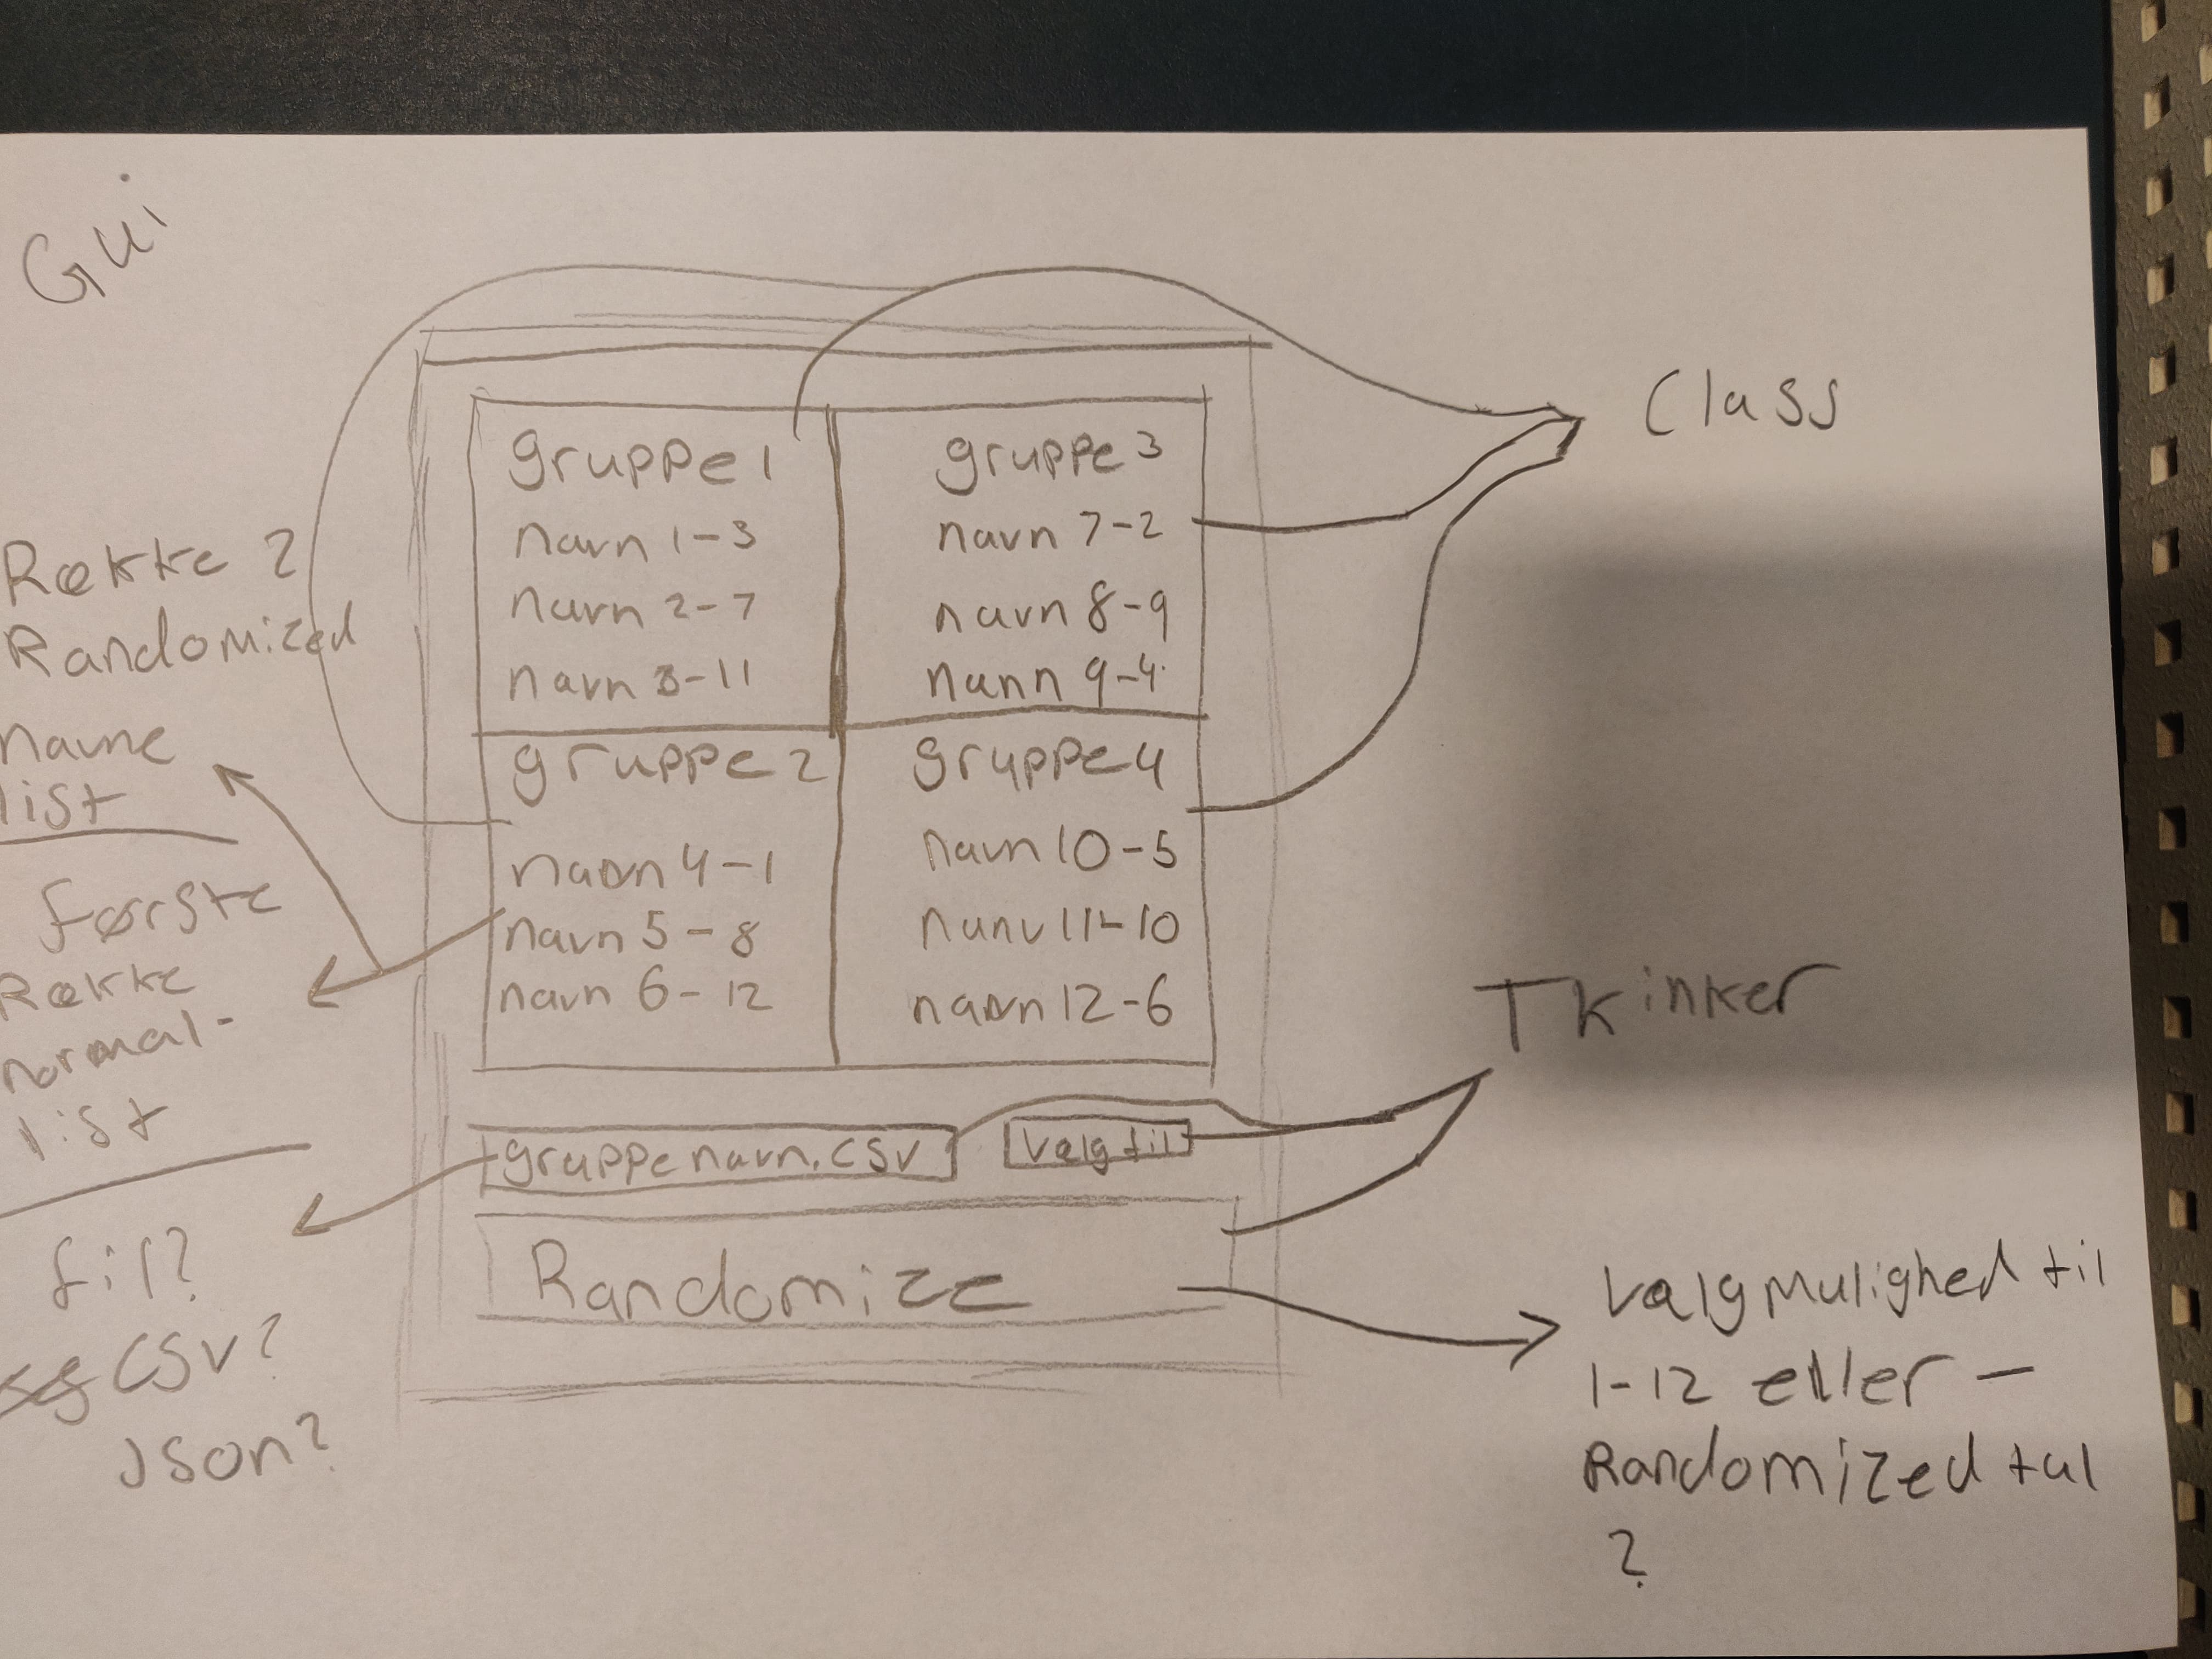 Gui
Række 2
Randomized
navne
list
første
Række
normal-
list
fil?
CSV?
Json?
gruppe 1
navn 1-3
navn 2-7
navn 3-11
gruppe 2
navn 4-1
navn 5-8
navn 6-12
gruppe 3
navn 7-2
navn 8-9
nann 9-4
gruppe 4
navn 10-5
nanv 11-10
navn 12-6
gruppe navn.csv
Vælg fil
Randomize
Class
TKinker
Valgmulighed til
1-12 eller -
Randomized tal
?